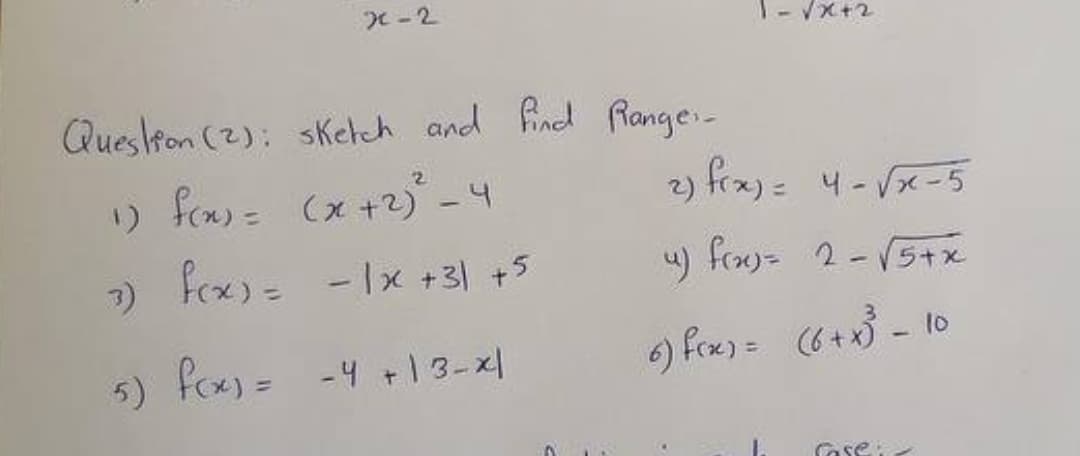 x-2 1-√x+2
Question (2): sketch and find Range:-
1) f(x) = (x+2)² - 4 2) f(x) = 4 - √x-5
3) f(x) = -|x+3| +5 4) f(x) = 2 - √5+x
5) f(x) = -4 + |3-x| 6) f(x) = (6+x)³ - 10
case:-